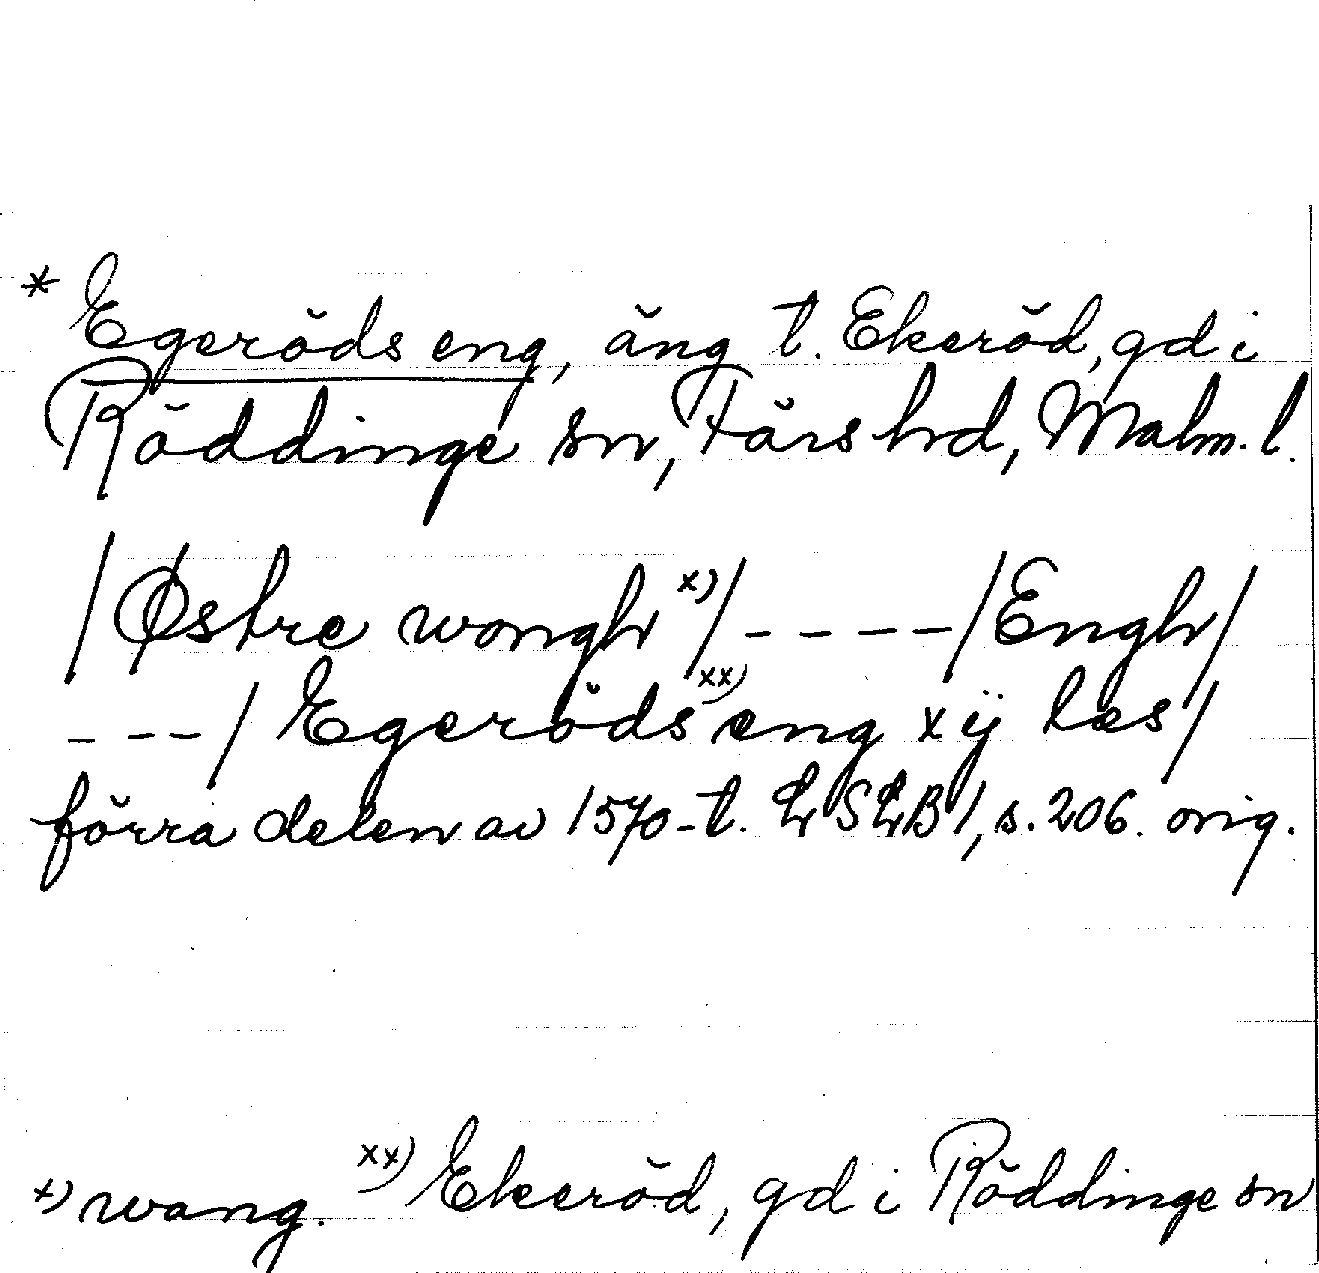 * Egeröds eng, äng t. Ekeröd, gd i
Röddinge sn, Färs hd, Malm. l.
/Østre wongh x)/ - - - - /Engh/
- - - / Egeröds xx) eng xij læs/
förra delen av 1570-t. LrSLrB 1, s. 206. orig.
x) wang. xx) Ekeröd, gd i Röddinge sn